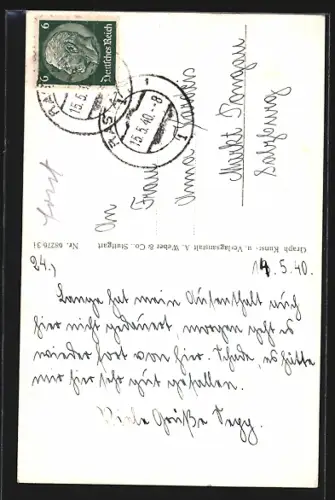 6 6
Deutsches Reich
RAST
15.5.40.-8
1
An
Frau
Anna
Markt Pongau
Salzburg
Graph. Kunst- u. Verlagsanstalt A. Weber & Co., Stuttgart Nr. 68276/34
24.) 14.5.40.
Lange hat mein Aufenthalt auch
hier nicht gedauert, morgen geht es
wieder fort von hier. Schade, es hätte
mir hier sehr gut gefallen.
Viele Grüße Sepp.